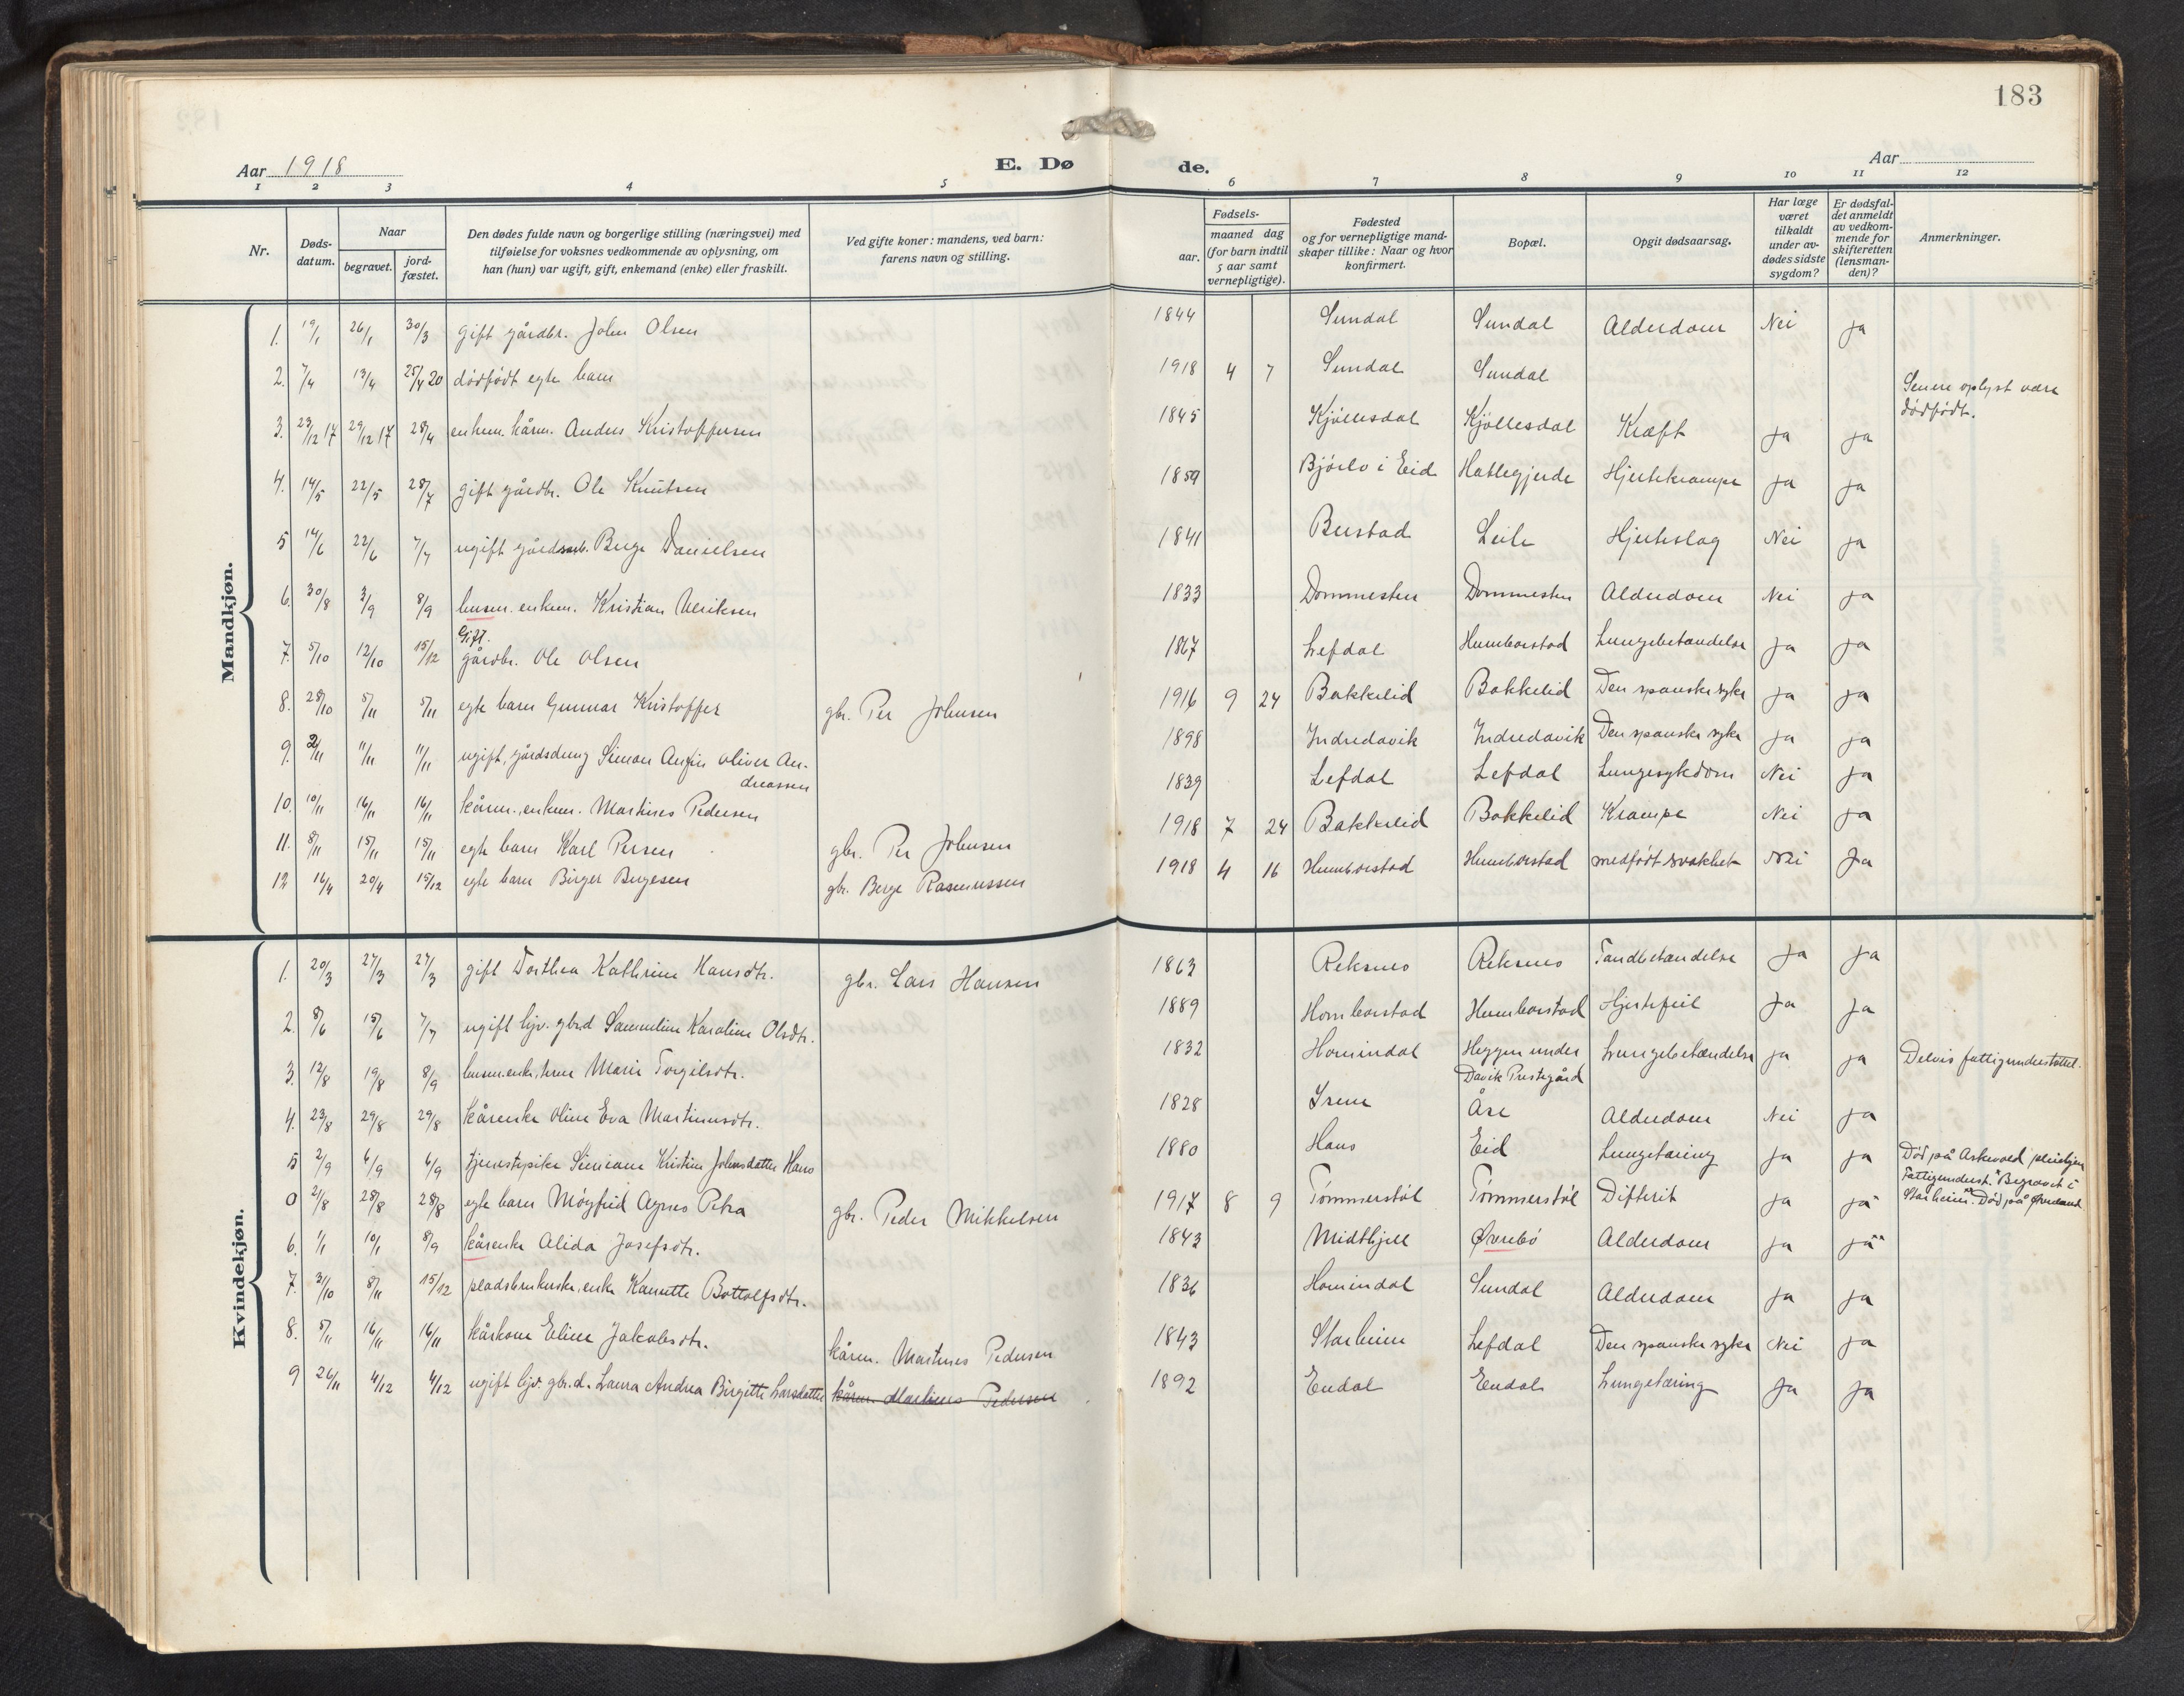 183
Aar 1918
E. Dø de.
Aar
1 2 3 4 5 6 7 8 9 10 11 12
Nr.
Døds-
datum.
Naar
begravet.
jord-
fæstet.
Den dødes fulde navn og borgerlige stilling (næringsvei) med
tilføielse for voksnes vedkommende av oplysning, om
han (hun) var ugift, gift, enkemand (enke) eller fraskilt.
Ved gifte koner: mandens, ved barn:
farens navn og stilling.
Fødsels-
aar.
maaned dag
(for barn indtil
5 aar samt
vernepligtige).
Fødested
og for vernepligtige mand-
skaper tillike: Naar og hvor
konfirmert.
Bopæl.
Opgit dødsaarsag.
Har læge
været
tilkaldt
under av-
dødes sidste
sygdom?
Er dødsfal-
det anmeldt
av vedkom-
mende for
skifteretten
(lensman-
den)?
Anmerkninger.
Mandkjøn.
1. 19/1 26/1 30/3 gift gårdbr. John Olsen 1844 Sundal Sundal Alderdom Nei ja
2. 7/4 13/4 25/4 20 dödfödt egte barn 1918 4 7 Sundal Sundal Senere oplyst være
dödfödt.
3. 23/12 17 29/12 17 28/4 enkem. kårm. Anders Kristoffersen 1845 Kjöllesdal Kjöllesdal Kræft ja ja
4. 14/5 22/5 28/7 gift gårdbr. Ole Knutsen 1859 Bjórlo i Eid Hatlegjerde Hjertekrampe ja ja
5 14/6 22/6 7/7 ugift gårdsarb. Berge Danielsen 1841 Bustad Leite Hjerteslag Nei ja
6. 30/8 3/9 8/9 husm. enkem. Kristian Ulriksen 1833 Dommesten Dommesten Alderdom Nei ja
Gift.
7. 5/10 12/10 15/12 gårdbr. Ole Olsen 1867 Lefdal Humborstad Lungebetændelse ja ja
8. 28/10 5/11 5/11 egte barn Gunnar Kristoffer gbr. Per Johnsen 1916 9 24 Bakkelid Bakkelid Den spanske syke ja ja
9. 2/11 11/11 11/11 ugift, gårdsdreng Simon Anfin Oliver An-
dreassen 1898 Indredavik Indredavik Den spanske syke ja ja
10. 10/11 16/11 16/11 kårm., enkem. Martines Pedersen 1839 Lefdal Lefdal Lungesykdom Nei ja
11. 8/11 15/11 15/11 egte barn Karl Persen gbr. Per Johnsen 1918 7 24 Bakkelid Bakkelid Krampe Nei ja
12 16/4 20/4 15/12 egte barn Birger Bergesen gbr. Berge Rasmussen 1918 4 16 Humborstad Humborstad medfödt svakhet Nei Ja
Kvindekjøn.
1. 20/3 27/3 27/3 gift Dorthea Kathrine Hansdtr. gbr. Lars Hansen 1863 Reksnes Reksnes Tandbetændelse Ja ja
2. 8/6 15/6 7/7 ugift ljv. gbrd Samueline Karoline Olsdtr. 1889 Homborstad Humborstad Hjertefeil Ja ja
3. 12/8 19/8 8/9 husm.enke, Marie Torgilsdtr. 1832 Hornindal Heggen under
Davik Prestegård Lungebetændelse ja ja Delvis fattigunderstöttet.
4. 23/8 29/8 29/8 kårenke Oline Eva Martinusdtr. 1828 Åse Alderdom Nei ja
5 2/9 6/9 6/9 tjenestepike Simeane Kristine Johnsdatter Haus 1880 Haus Eid Lungetæring ja ja Död på Askevold pleiehjem
Fattigunderst. Begravet i
0 21/8 28/8 28/8 egte barn Möyfrid Agnes Petra gbr. Peder Mikkelsen 1917 8 9 Tömmerstöl Tömmerstöl Difterit ja ja Starheim. Död på
6. 1/1 10/1 8/9 kårenke Alida Josefsdtr. 1843 Midthjell Øvrebö Alderdom ja ja
7. 31/10 8/11 15/12 pladsbrukerske, enke Kanutte Bottolfsdtr. 1836 Hornindal Sundal Alderdom ja ja
8. 5/11 16/11 16/11 kårkone Eline Jakobsdtr. kårm. Martines Pedersen 1843 Starheim Lefdal Den spanske syke Nei ja
9 26/11 4/12 4/12 ugift ljv. gbr.d. Laura Andrea Birgitte Larsdatter kårm. Martines Pedersen 1892 Endal Endal Lungetæring ja ja